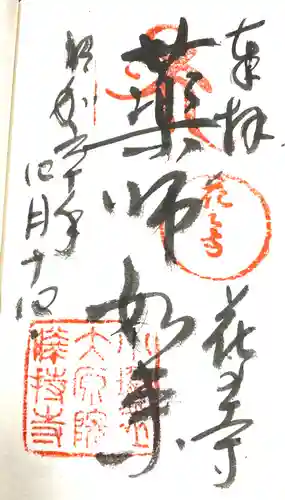 奉拝
花の寺
花の寺
薬師如来
昭和五十年
四月十四日
小塩山
大原院
勝持寺